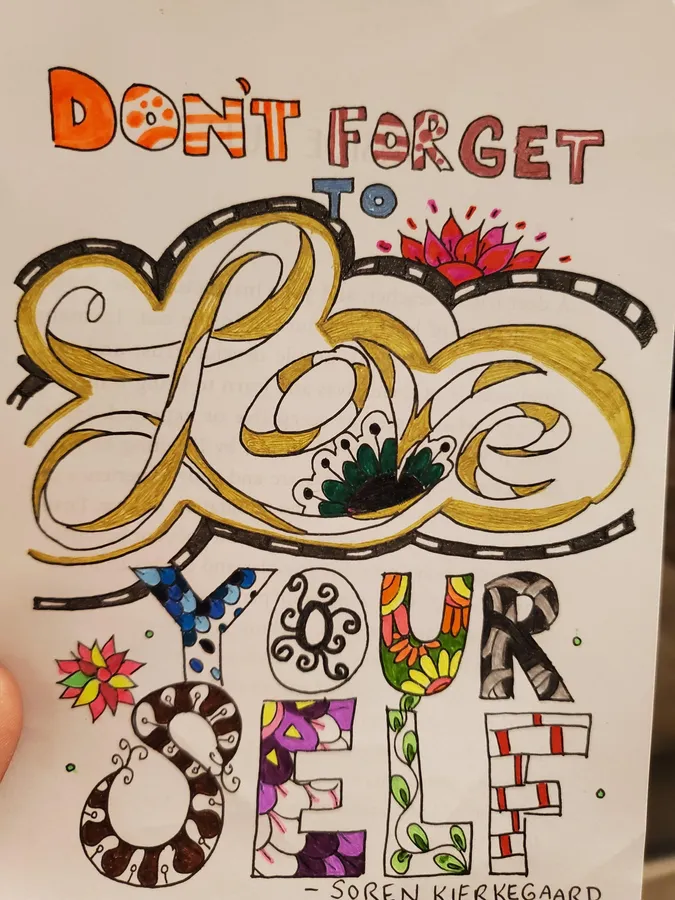 DON'T FORGET
TO
Love
YOUR
SELF
- SOREN KIERKEGAARD